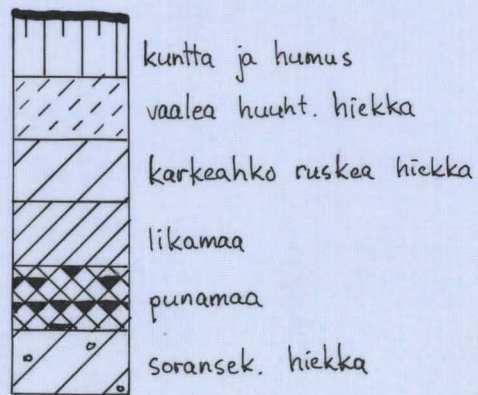 kuntta ja humus
vaalea huuht. hiekka
karkeahko ruskea hiekka
likamaa
punamaa
soransek. hiekka